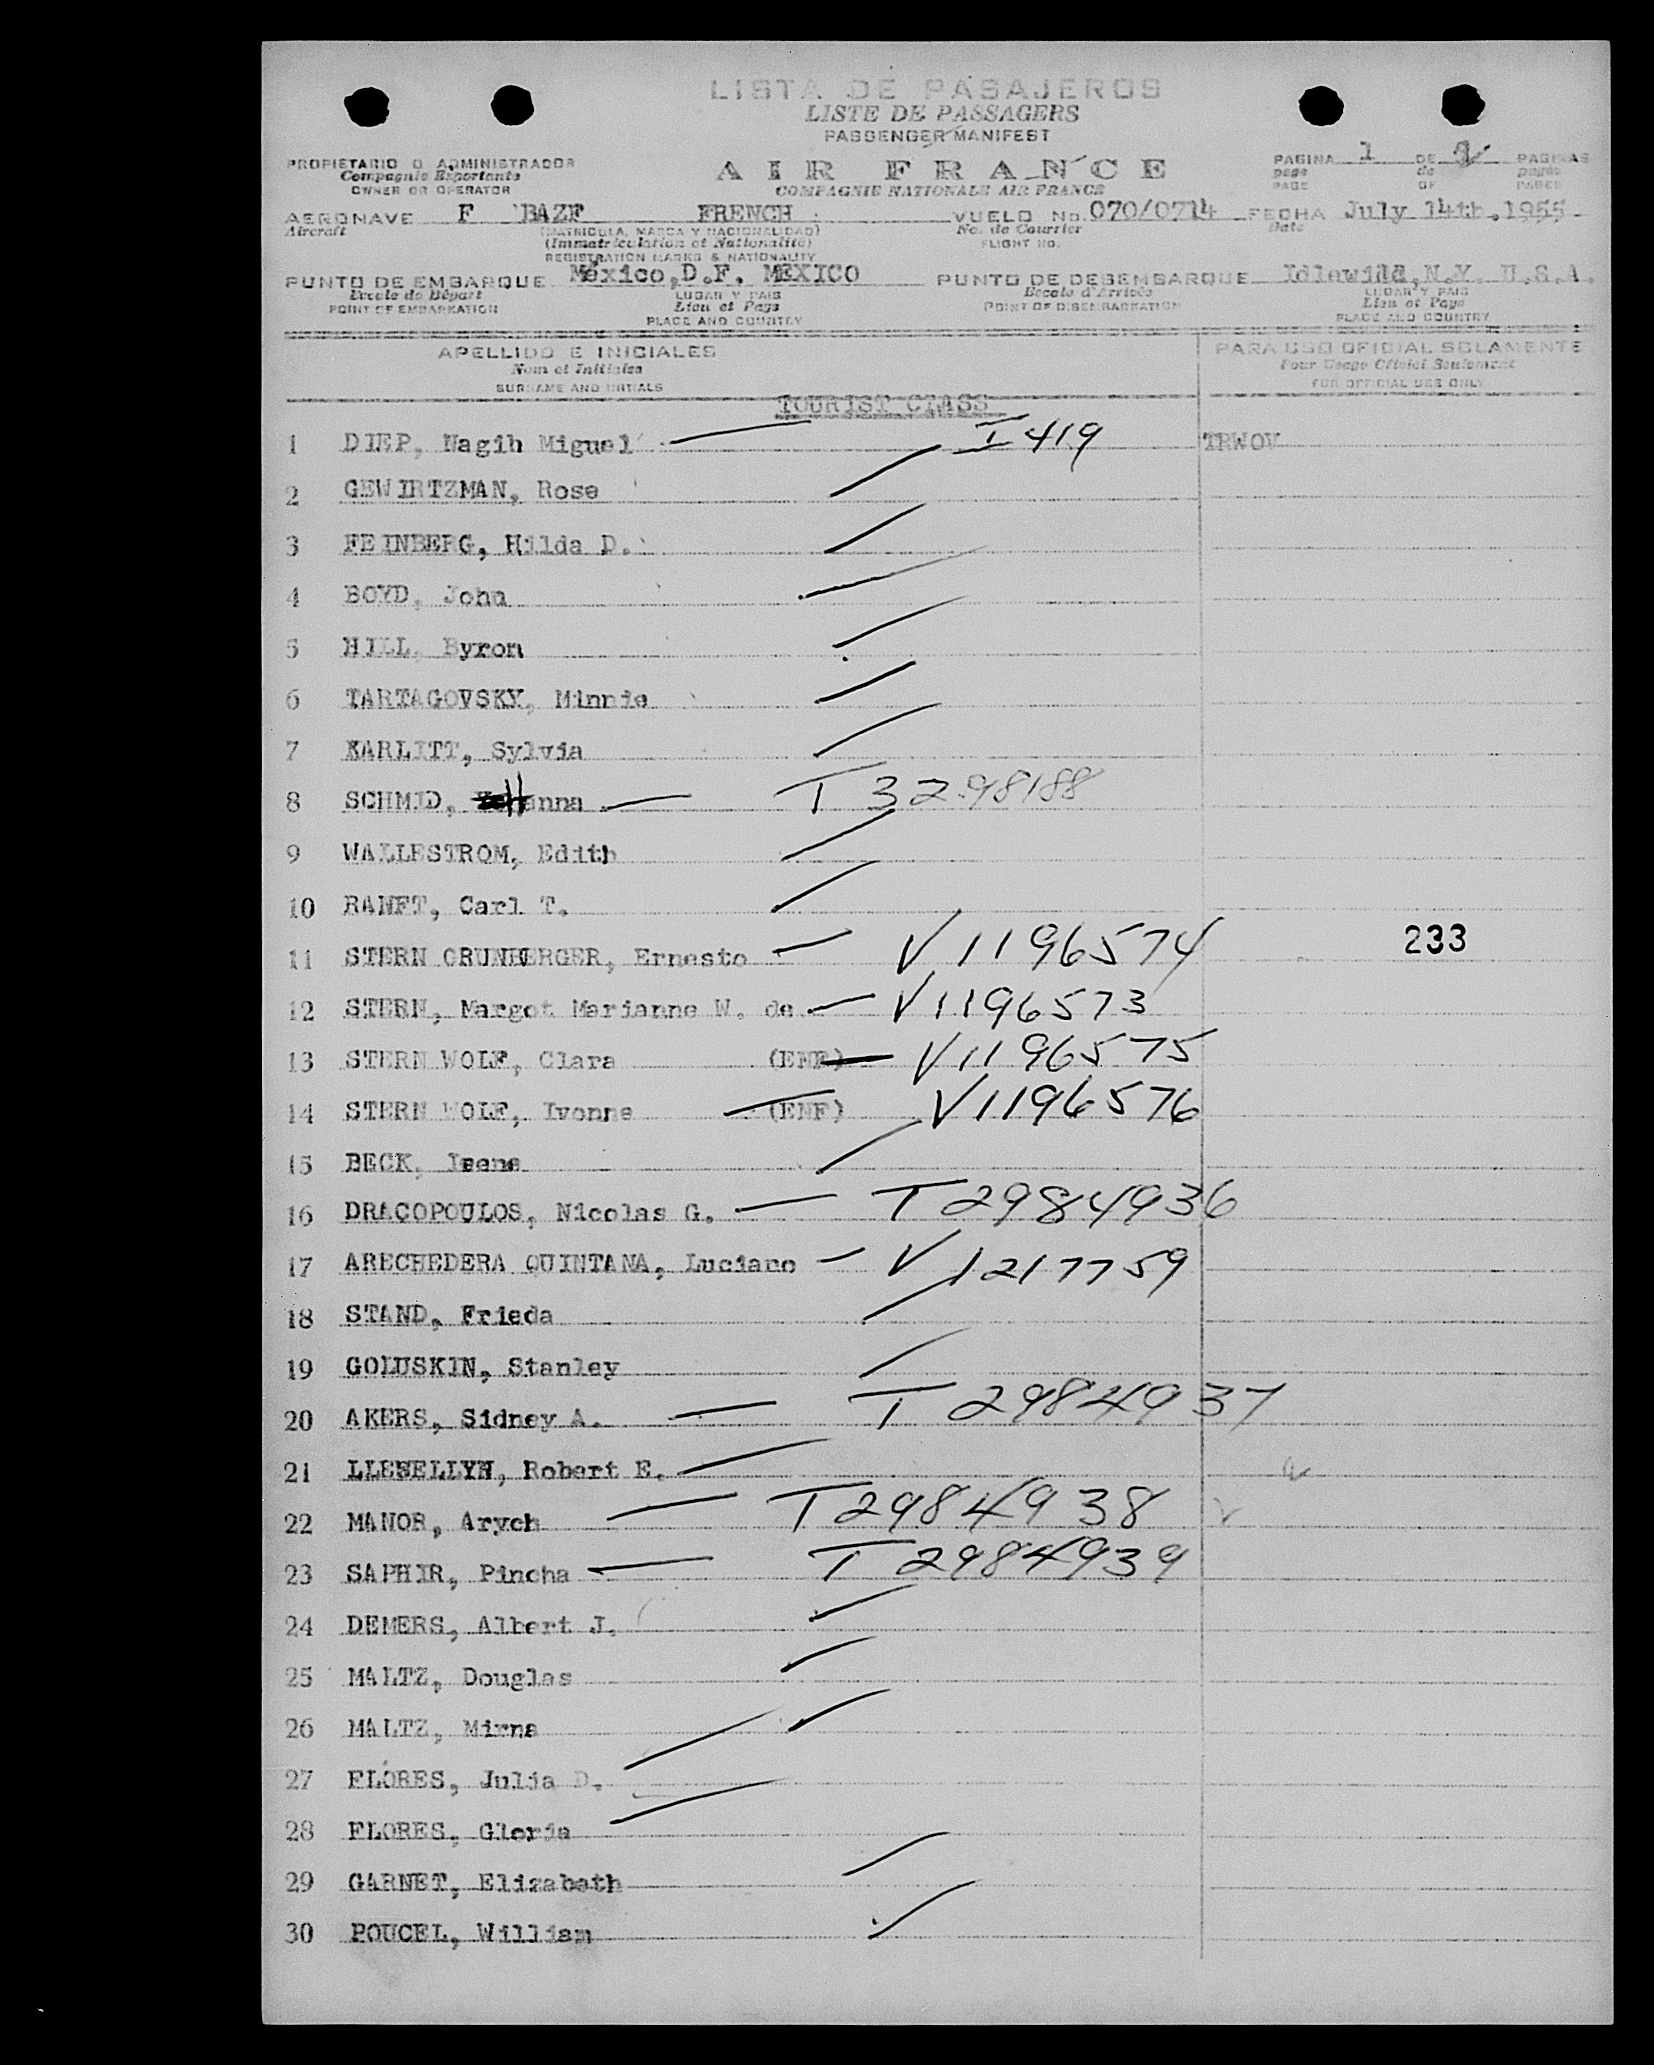 LISTA DE PASAJEROS
LISTE DE PASSAGERS
PASSENGER MANIFEST
PROPIETARIO O ADMINISTRADOR
Compagnie Exportante
OWNER OR OPERATOR
AIR FRANCE
COMPAGNIE NATIONALE AIR FRANCE
PAGINA 1 DE PAGINAS
page de pages
PAGE OF PAGES
AERONAVE F BAZF FRENCH VUELO No. 070/0714 FECHA July 14th, 1955
Aircraft (MATRICULA, MARCA Y NACIONALIDAD) No. de Courrier Date
(Immatriculation et Nationalité) FLIGHT NO.
REGISTRATION MARKS & NATIONALITY
PUNTO DE EMBARQUE México,D.F. MEXICO PUNTO DE DESEMBARQUE Idlewild,N.Y. U.S.A.
Escale de Départ LUGAR Y PAIS Escale d'Arrivée LUGAR Y PAIS
POINT OF EMBARKATION Lieu et Pays POINT OF DISEMBARKATION Lieu et Pays
PLACE AND COUNTRY PLACE AND COUNTRY
APELLIDO E INICIALES PARA USO OFICIAL SOLAMENTE
Nom et Initiales Pour Usage Officiel Seulement
SURNAME AND INITIALS FOR OFFICIAL USE ONLY
TOURIST CLASS
1 DIEP, Nagih Miguel I 419 TRWOV
2 GEWIRTZMAN, Rose
3 FEINBERG, Hilda D.
4 BOYD, John
5 HILL, Byron
6 TARTAGOVSKY, Minnie
7 KARLITT, Sylvia
8 SCHMID, anna T 3298188
9 WALLESTROM, Edith
10 RANFT, Carl T.
11 STERN GRUNBERGER, Ernesto V 1196574 233
12 STERN, Margot Marianne W. de V 1196573
13 STERN WOLF, Clara (ENF) V 1196575
14 STERN WOLF, Ivonne (ENF) V 1196576
15 BECK, Irene
16 DRACOPOULOS, Nicolas G. T 2984936
17 ARECHEDERA QUINTANA, Luciano V 1217759
18 STAND, Frieda
19 GOLUSKIN, Stanley
20 AKERS, Sidney A. T 2984937
21 LLEWELLYN, Robert E.
22 MANOR, Arych T 2984938
23 SAPHIR, Pincha T 2984939
24 DEMERS, Albert J.
25 MALTZ, Douglas
26 MALTZ, Mirna
27 FLORES, Julia D.
28 FLORES, Gloria
29 GARNET, Elizabeth
30 POUCEL, William